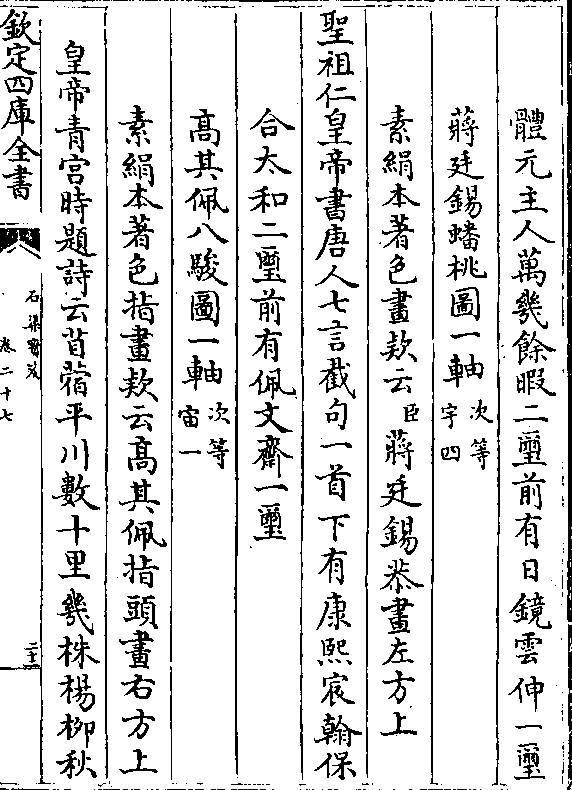 體元主人萬幾餘暇二璽前有日鏡雲伸一璽
蔣廷錫蟠桃圖一軸 次等 字四
素絹本著色畫欵云臣蔣廷錫恭畫左方上
聖祖仁皇帝書唐人七言截句一首下有康熙宸翰保
合太和二璽前有佩文齋一璽
高其佩八駿圖一軸 次等 宙一
素絹本著色指畫欵云高其佩指頭畫右方上
皇帝青宮時題詩云苜蓿平川數十里幾株楊柳秋
欽定四庫全書
石渠寶笈
卷二十七